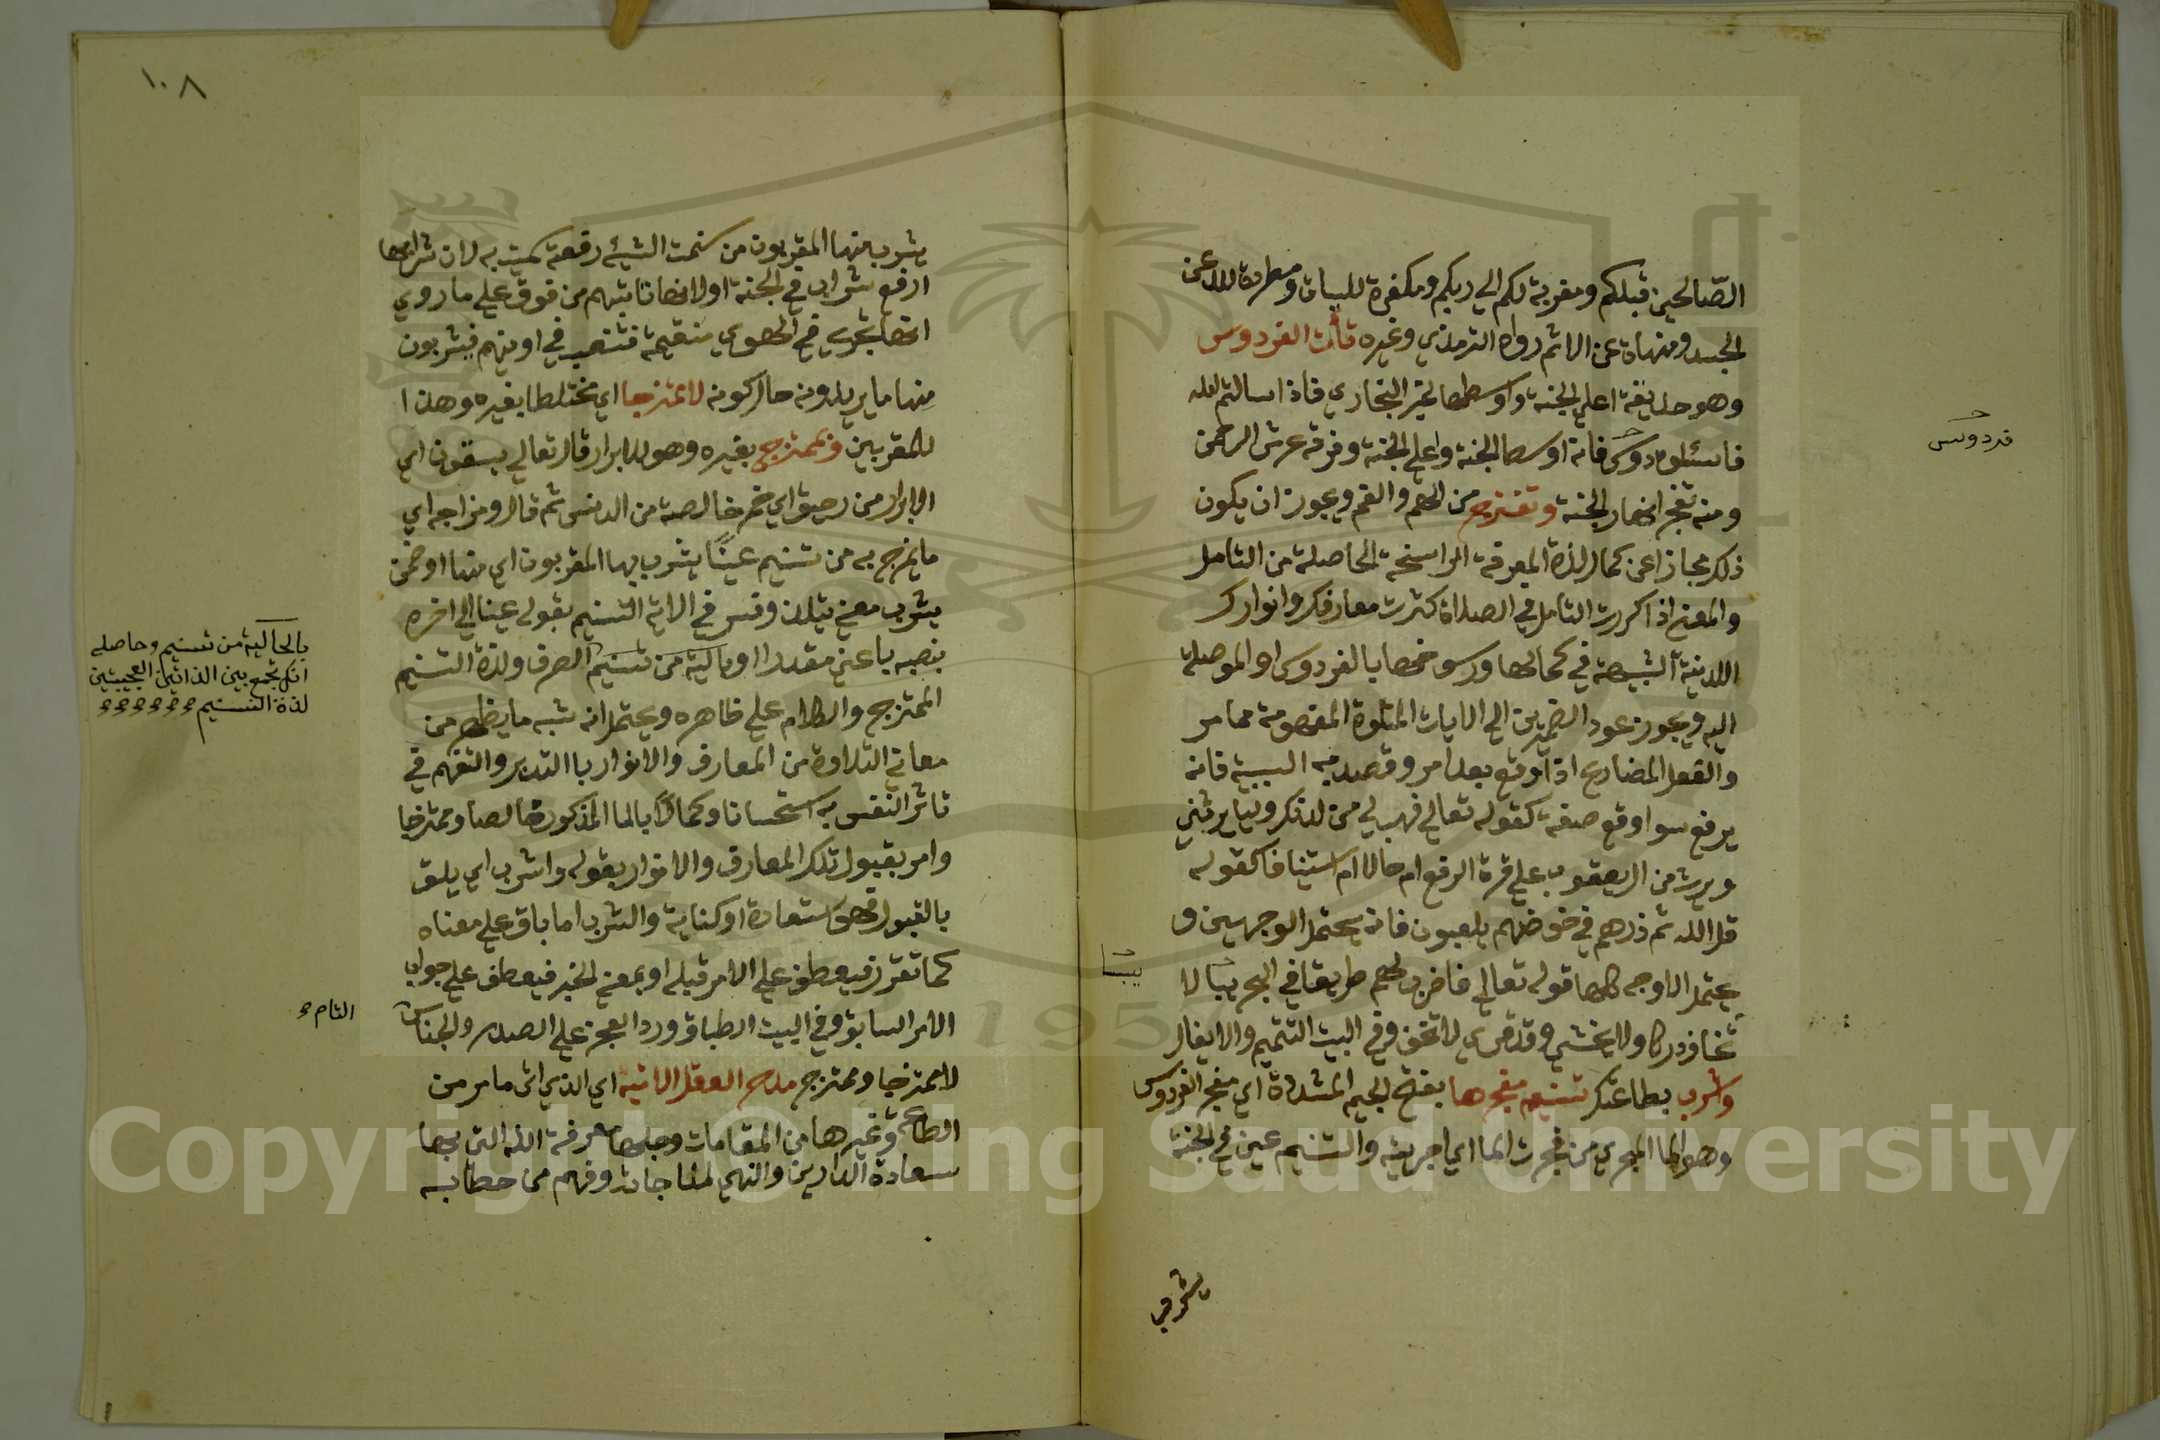 الصّالحين قبلكم ومقربة لكم الي ربكم ومكفرة للسيات ومطردة للداعن
الجسد ومنهاة عن الاثم رواه الترمذي وغيره تأت الفردوس
وهو حديقة اعلي الجنة واوسطها لخبر البخاري فاذا سالتم الله
فاسئلوه دوس فانه اوسط الجنة واعلي الجنة وفوقه عرش الرحمن
ومنه تفجر انهار الجنة وتفترج من الهم والغم ويجوز ان يكون
ذلك مجازا عن كمال لذة المعرفة الراسخة الحاصلة من التامل
والمعني اذا كررت التامل في الصلاة كثرت معارفك وانوارك
اللدنية الشبيهة في كمالها ورسوخها بالفردوس او الموصلة
اليه ويجوز عود الضميرين الي الايات المتلوة المفهومة مما مر
والفعل المضارع اذا وقع بعد امر وقصد به السببية فانه
يرفع سوا وقع صفة كقوله تعالي فهب لي من لدنك وليا يرثني
ويرث من ال يعقوب علي قرة الرفع ام حالا ام استينافا كقوله
قل الله ثم ذرهم في خوضهم يلعبون فانه يحتمل الوجهين و
يحتمل الاوجه كلها قوله تعالي فاضرب لهم طريقا في البحر يبسا لا
تخاف دركا ولا يخشي وقد قري لا تخف وفي البيت التتميم والايغال
واشرب بطاعتك تسنيم مفجرها بفتح الجيم المشددة اي مفجر الفردوس
وهو الما المجري من فجرت الما اي اجريته والتسنيم عين في الجنة
فردوس
يبسا
يشرب
١٠٨
يشرب منها المقربون من سنمت الشيء رفعته سميت به لان شرابها
ارفع شراب في الجنة او لانها تاتيهم من فوق علي ما روي
انها تجري في الهوي متسنمة فتنصب في اوانيهم فيشربون
منها ما يريدونه حال كونه لا ممتزجا اي مختلطا بغيره وهذا
للمقربين وممتزج بغيره وهو للابرار قال تعالي يسقون اي
الابرار من رحيق اي خمر خالصة من الدنس ثم قال ومزاجه اي
ما يمزج به من تسنيم عينًا يشرب بها المقربون اي منها او ضمن
يشرب معني يتلذذ وفسر في الاية التسنيم بقوله عينا الي اخره
بنصبه باعني مقدرا او بالية من تسنيم الصرف ولذة التسنيم
الممتزج والكلام علي ظاهره ويحتمل انه شبه ما يظهر من
معاني التلاوة من المعارف والانوار بالتدبر والتفهم في
تاثر النفس به استحسانا وكمالا بالما المذكور خالصا وممتزجا
وامر بقبول تلك المعارف والانوار بقوله واشرب اي يلق
بالقبول فهو استعارة او كناية والشرب اما باق علي معناه
كما تقرر فيعطف علي الامر قبله او بمعني الخبر فيعطف علي جواب
الامر السابق وفي البيت الطباق ورد العجز علي الصدر والجناس
لا ممتزجا وممتزج مدح العقل الاتيه اي الذي اتى ما مر من
الطاعة وغيرها من المقامات وجلها معرفة الله التي بها
سعادة الدارين والتهي لمناجاته وفهم من خطابه
بالحالية من تسنيم وحاصله
انك تجمع بين اللذاتين العجيبتين
لذة التسنيم
التام
Copyright © King Saud University
1957